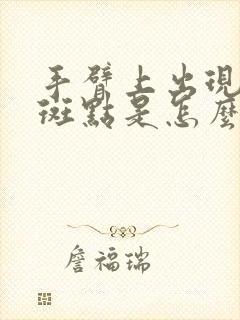 手臂上出現
斑點是怎麼
詹福瑞